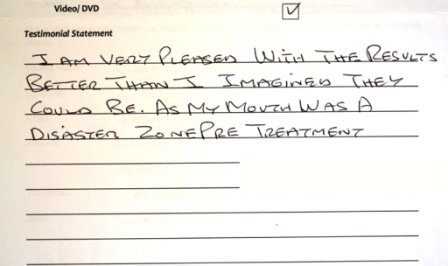 Video/ DVD
Testimonial Statement
I AM VERY PLEASED WITH THE RESULTS
BETTER THAN I IMAGINED THEY
COULD BE. AS MY MOUTH WAS A
DISASTER ZONE PRE TREATMENT